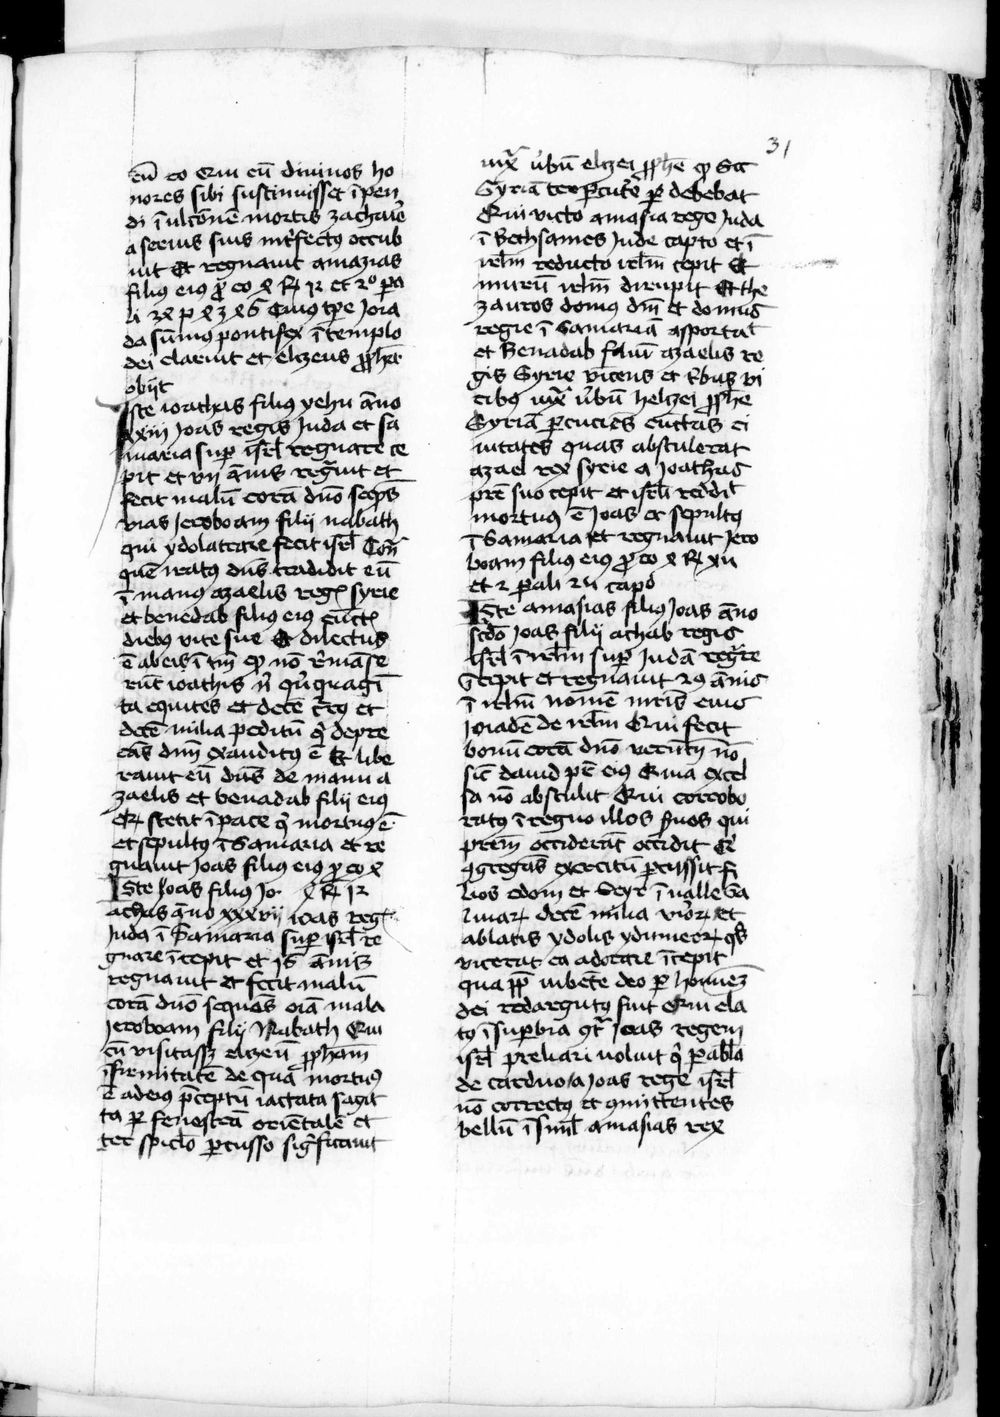 31
eū eo Qui eū divinos ho
nores sibi sustinuisset īpen
di ī ulcōnem mortis zacharie
a servis suis int̄fectꝯ occub
uit Et regnavit amazias
filius eius ꝓ eo
Cuius tp̄e Joia
da sūmus pontifex ī templo
dei claruit et elizeus ꝓph̄a
obijt
Iste ioathas filius yehu āno
xxiij Joas regis Juda et sa
maria sup̄ isrl̄ regnare ce
pit et vij annis regn̄avit et
fecit malū corā dn̄o seq̄ns
vias Jeroboam filii nabath
qui ydolatrare fecit isrl̄ Cont̄
quē iratus dn̄s tradidit eū
ī manus azaelis reḡ syrie
et benedab filius eius cūct̄
diebꝯ vite sue Et dilectus
ē ab eis ī tm̄ ꝙ nō r̄mānse
rūt ioathis n̄ qn̄quagī
ta equites et decē c̄rꝯ et
decē milia peditū q̄ depre
cās dn̄m exauditus ē Et libe
ravit eū dn̄s de manu a
zaelis et benadab filii eius
stetit ī pace q̄ mortuꝯ ē
et sepultꝯ ī Samaria et re
gnavit Joas filius eius ꝓ eo
Iste Joas filius Jo
achas āno xxxvij ioas reḡ
Juda ī Samaria sup̄ isrl̄ re
gnare īcepit et 16 ānis
regnavit et fecit malū
corā dn̄o sequēs oīa mala
Jeroboam filij Nabath Qui
cū visitass̄ elizeū ꝓph̄am
īfirmitatē de qua mortuꝯ
ē ad eiꝯ p̄ceptū iactata sagit
ta ꝑ fenestrā orientalē et
ter ꝑcusso sig̅ficavit
iux̄ v̄bū elizei ꝓph̄e ꝙ
Syriā ter ꝑcut̄e ꝑ debebat
Qui victo amasia rege Juda
ī Bethsames Jude capto et ī
irl̄m reducto irl̄m cepit Et
murū irl̄m dirupit Et the
zauros domus dn̄i et domus
regie ī Samaria asportat̄
et Benadab filiū azaelis re
gis Syrie vicens et t̄bus vi
cibꝯ iux̄ v̄bū helizei ꝓph̄e
Syriā ꝑcuciēs cūctas ci
vitates quas abstulerat
azael rex syrie a Joathas
pr̄e suo cepit et isrl̄i reddit
mortuꝯ ē Joas et sepultꝯ
ī Samaria et regnavit Jero
boam filius eius ꝓ eo
Iste amasias filius Joas āno
sc̄do Joas filij achab regis
isrl̄ ī irl̄m sup̄ Judā regn̄re
īcepit et regnavit 29 ānis
ī irl̄m nomē mr̄is eius
Joiadē de irl̄m Qui fecit
bonū corā dn̄o verūtn̄ nō
sic̄ david pr̄ eius Quia excel
sa nō abstulit Qui corrobo
ratꝯ ī regno illos s̄vos qui
prēm occiderāt occidit Et
ꝯgregās exercitū ꝑcussit fi
lios edom et Seyr ī valle sa
linarꝝ decē milia virorꝝ et
ablatis ydolis ydumeorꝝ qs̄
vicerat ea adorare īcepit
qua ꝓp̄ iubēte deo ꝑ homīez
dei redargutꝯ fuit Qui ela
tꝯ ī sup̄bia ꝯtr̄ Joas regem
isrl̄ preliari voluit q̄ ꝑabl̄a
de carduo a Joas rege isrl̄
nō correctꝯ et ꝯmittentes
bellū ī siml̄ amasias rex